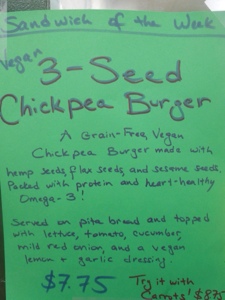 Sandwich of the Week
Vegan
3-Seed
Chickpea Burger
A Grain-Free, Vegan
Chickpea Burger made with
hemp seeds, flax seeds, and sesame seeds.
Packed with protein and heart-healthy
Omega-3!
Served on pita bread and topped
with lettuce, tomato, cucumber,
mild red onion, and a vegan
lemon + garlic dressing.
$7.75
Try it with
Carrots! $8.75